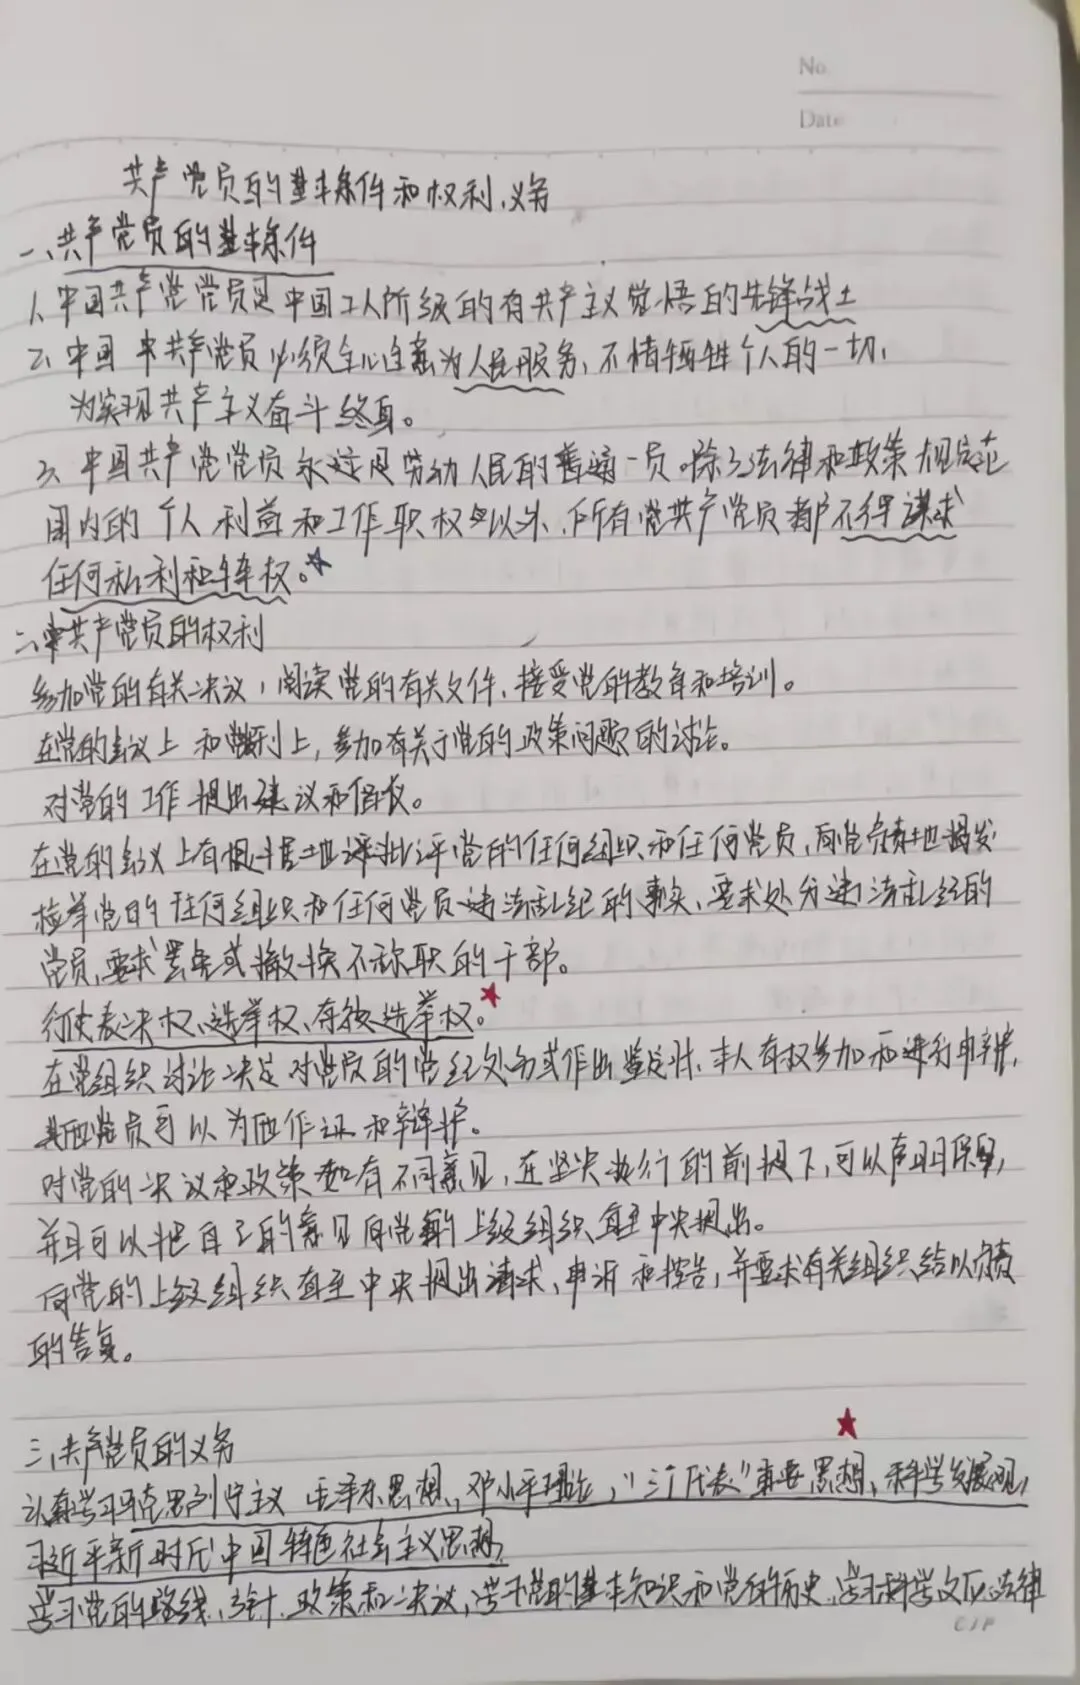 No.
Date
共产党员的基本条件和权利、义务
一、共产党员的基本条件
1、中国共产党党员是中国工人阶级的有共产主义觉悟的先锋战士
2、中国共产党员必须全心全意为人民服务、不惜牺牲个人的一切,
为实现共产主义奋斗终身。
3、中国共产党党员永远是劳动人民的普通一员。除了法律和政策规定范
围内的个人利益和工作职权以外、所有共产党员都不得谋求
任何私利和特权。
二、共产党员的权利
参加党的有关决议,阅读党的有关文件、接受党的教育和培训。
在党的会议上和党刊上,参加有关于党的政策问题的讨论。
对党的工作提出建议和倡议。
在党的会议上有根据地批评党的任何组织和任何党员,向党负责地揭发
检举党的任何组织和任何党员违法乱纪的事实、要求处分违法乱纪的
党员,要求罢免或撤换不称职的干部。
行使表决权、选举权、有被选举权。
在党组织讨论决定对党员的党纪处分或作出鉴定时、本人有权参加和进行申辩,
其他党员可以为他作证和辩护。
对党的决议和政策如有不同意见,在坚决执行的前提下,可以声明保留,
并且可以把自己的意见向党的上级组织直至中央提出。
向党的上级组织直至中央提出请求、申诉和控告,并要求有关组织给以负责
的答复。
三、共产党员的义务
认真学习马克思列宁主义 毛泽东思想、邓小平理论,“三个代表”重要思想、科学发展观,
习近平新时代中国特色社会主义思想,
学习党的路线、方针、政策和决议,学习党的基本知识和党的历史,学习科学文化、法律